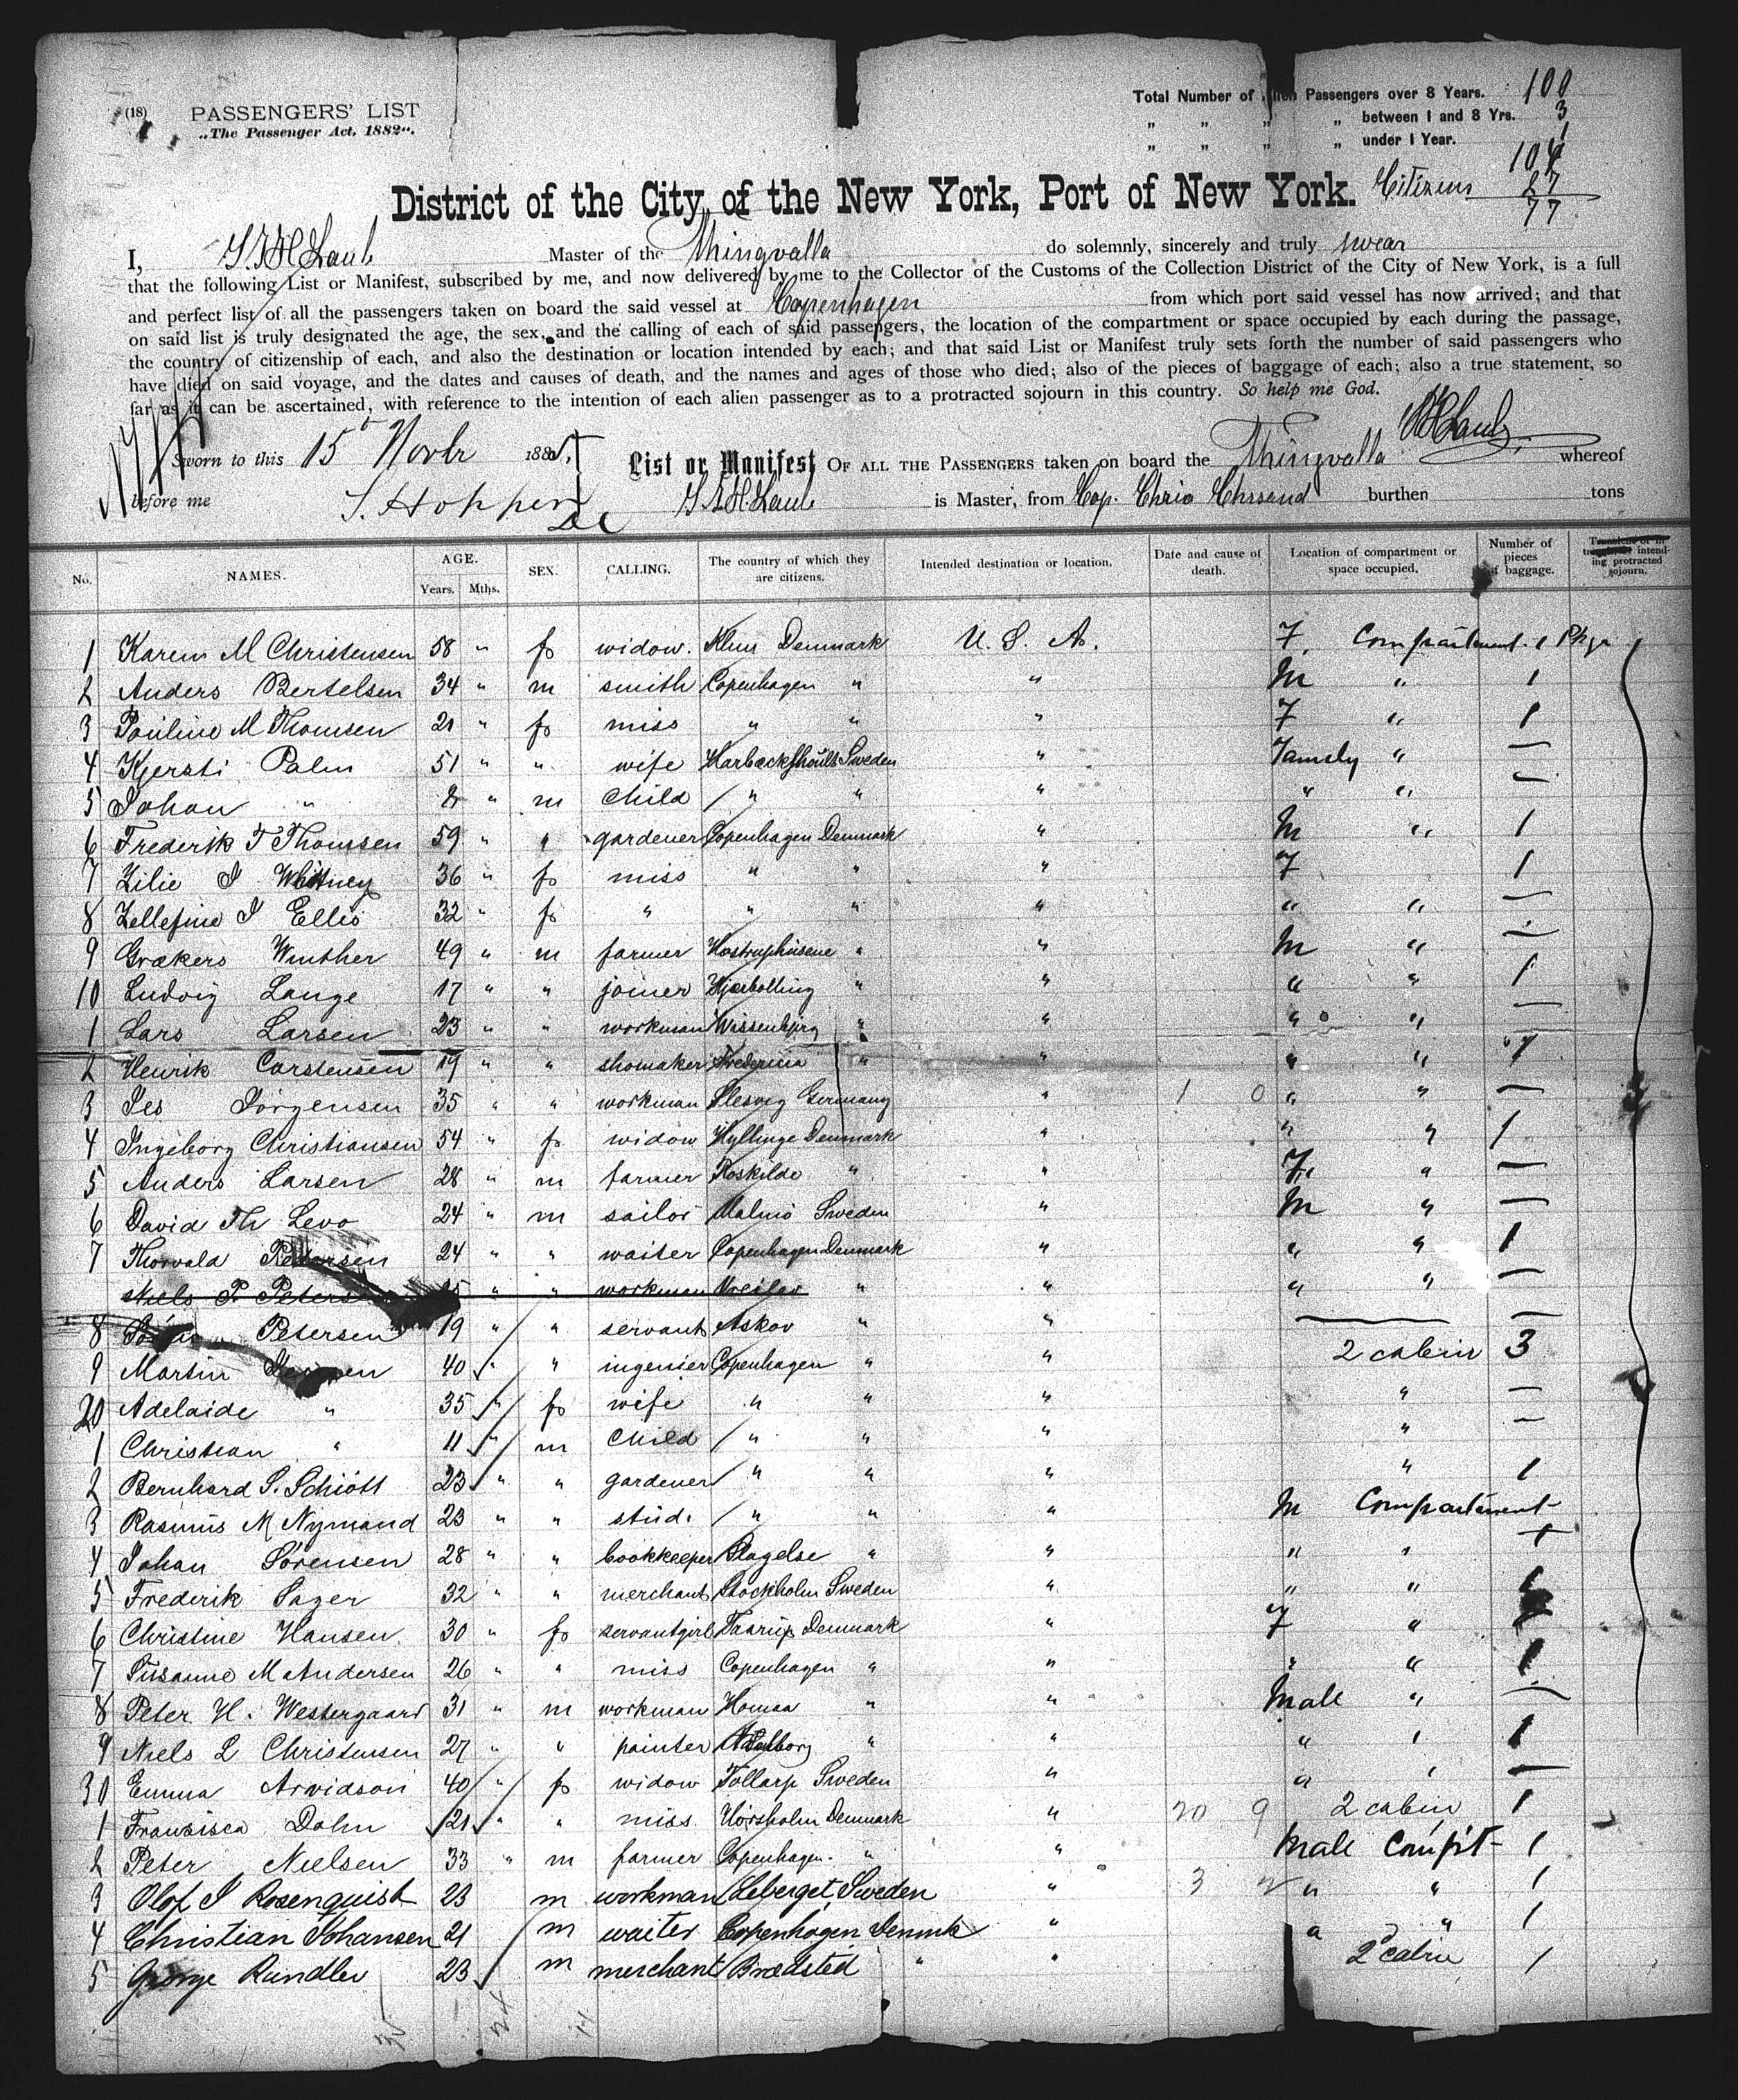 (18) PASSENGERS' LIST
„The Passenger Act, 1882".
Total Number of Alien Passengers over 8 Years. 100
„ „ „ „ between 1 and 8 Yrs. 3
„ „ „ „ under 1 Year. 1
104
Citizens 27
77
District of the City of the New York, Port of New York.
I, Laub Master of the Thingvalla do solemnly, sincerely and truly swear
that the following List or Manifest, subscribed by me, and now delivered by me to the Collector of the Customs of the Collection District of the City of New York, is a full
and perfect list of all the passengers taken on board the said vessel at Copenhagen from which port said vessel has now arrived; and that
on said list is truly designated the age, the sex, and the calling of each of said passengers, the location of the compartment or space occupied by each during the passage,
the country of citizenship of each, and also the destination or location intended by each; and that said List or Manifest truly sets forth the number of said passengers who
have died on said voyage, and the dates and causes of death, and the names and ages of those who died; also of the pieces of baggage of each; also a true statement, so
far as it can be ascertained, with reference to the intention of each alien passenger as to a protracted sojourn in this country. So help me God.
Laub
Sworn to this 15t Novbr 188
before me S. Hopper
List or Manifest OF ALL THE PASSENGERS taken on board the Thingvalla whereof
Laub is Master, from Cop. Chria Chrsand burthen tons
No. NAMES. AGE. Years. Mths. SEX. CALLING. The country of which they are citizens. Intended destination or location. Date and cause of death. Location of compartment or space occupied. Number of pieces of baggage. intending protracted sojourn.
1 Karen M Christensen 58 " f widow. Denmark U. S. A. F. Compartment. 1 Pkge
2 Anders Bertelsen 34 " m smith Copenhagen " " M " 1
3 Pauline M Thomsen 21 " f miss " " " F " 1
4 Kjersti Palm 51 " " wife Sweden " Family " —
5 Johan " 8 " m Child " " " " " —
6 Frederik F Thomsen 59 " " gardener Copenhagen Denmark " M " 1
7 Lilie J Whitney 36 " f miss " " " F 1
8 J Ellis 32 " f " " " " " " —
9 Winther 49 " m farmer " " M " —
10 Ludvig Lange 17 " " joiner Hjarbolling " " " " 1
1 Lars Larsen 23 " " workman Wissenbjerg " " " " —
2 Henrik Carstensen 19 " " shomaker Fredericia " " " " 1
3 Jes Jörgensen 35 " " workman Slesvig Germany " 1 0 " " —
4 Ingeborg Christiansen 54 " f widow Hyllinge Denmark " " " 1
5 Anders Larsen 28 " m farmer Roskilde " " F " —
6 David Th Levo 24 " m sailor Malmö Sweden " M " —
7 Thorvald Petersen 24 " " waiter Copenhagen Denmark " " " 1
Niels P. Petersen 25 " " workman " " " " —
8 Petersen 19 " " servant Askov " " —
9 Martin 40 " " ingenier Copenhagen " " 2 cabin 3
20 Adelaide " 35 " f wife " " " " —
1 Christian " 11 " m Child " " " —
2 Bernhard S. Schiött 23 " " gardener " " " " 1
3 Rasmus M Nymand 23 " " stud. " " " M Compartment
4 Johan Sørensen 28 " " bookkeeper Slagelse " " " " 1
5 Frederik Sager 32 " " merchant Stockholm Sweden " " " 1
6 Christine Hansen 30 " f servantgirl Taarup Denmark " F "
7 Susanne M Andersen 26 " " miss Copenhagen " " " " 1
8 Peter H. Westergaard 31 " m workman " " Male " —
9 Niels L Christensen 27 " " painter Aalborg " " " 1
30 Emma Arvidson 40 " f widow Tollarp Sweden " " —
1 Dahn 21 " " miss. Hörsholm Denmark " 20 9 2 cabin 1
2 Peter Nielsen 33 " m farmer Copenhagen. " " Male Compt 1
3 Olof J Rosenquist 23 m workman Sweden " 3 " " 1
4 Christian Johansen 21 m waiter Copenhagen Denmk " " " 1
5 George Rundlev 23 m merchant Brædsted " " 2d cabin 1